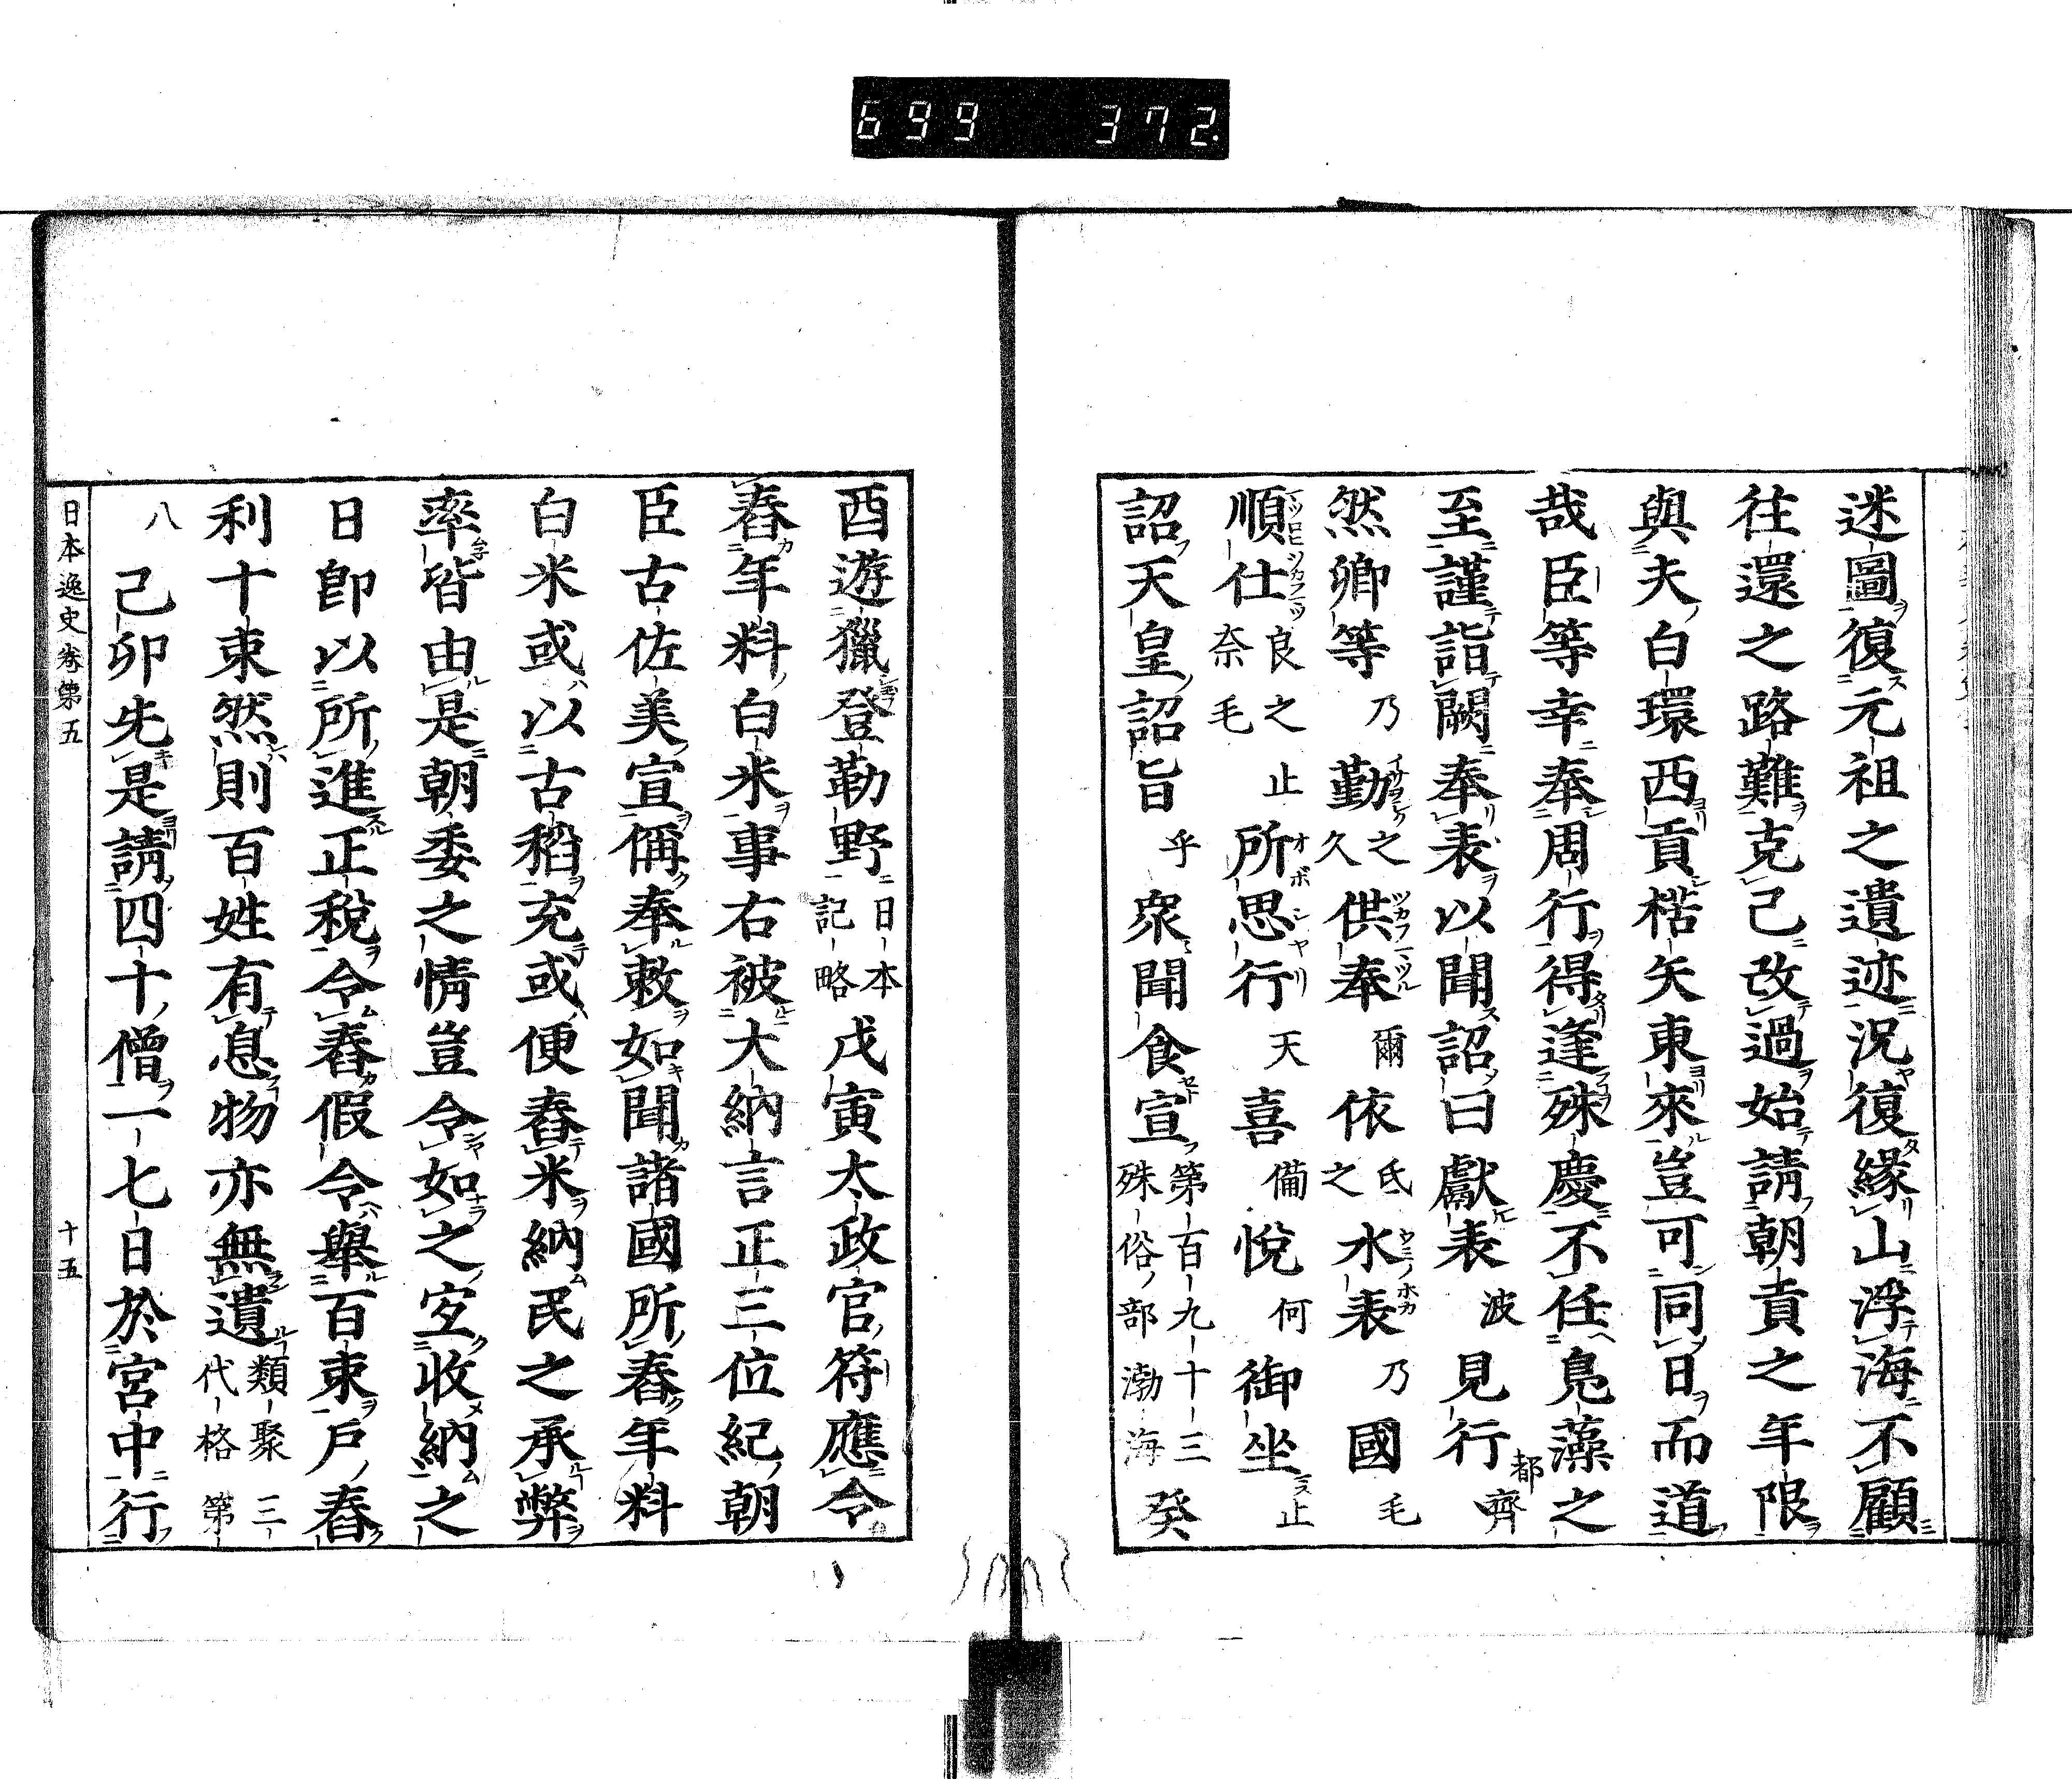 699 372
迷圖復元祖之遺迹況復緣山浮海不顧
往還之路難克己改過始請朝責之年限
與夫白環西貢楛矢東來豈可同日而道
哉臣等幸奉周行得逢殊慶不任鳧藻之
至謹詣闕奉表以聞詔曰獻表波見行都齊
然卿等乃勤之久供奉爾依氐之水表乃國毛
順仕良之奈毛止所思行天喜備悅何御坐止
詔天皇詔旨乎衆聞食宣第百九十三殊俗部渤海癸
酉遊獵登勒野日本記略戊寅太政官符應令
舂年料白米事右被大納言正三位紀朝
臣古佐美宣偁奉敕如聞諸國所舂年料
白米或以古稻充或便舂米納民之承弊
率皆由是朝委之情豈令如之宐收納之
日卽以所進正稅令舂假令擧百束戶舂
利十束然則百姓有息物亦無遺類聚三代格第
八己卯先是請四十僧一七日於宮中行
日本逸史卷第五 十五